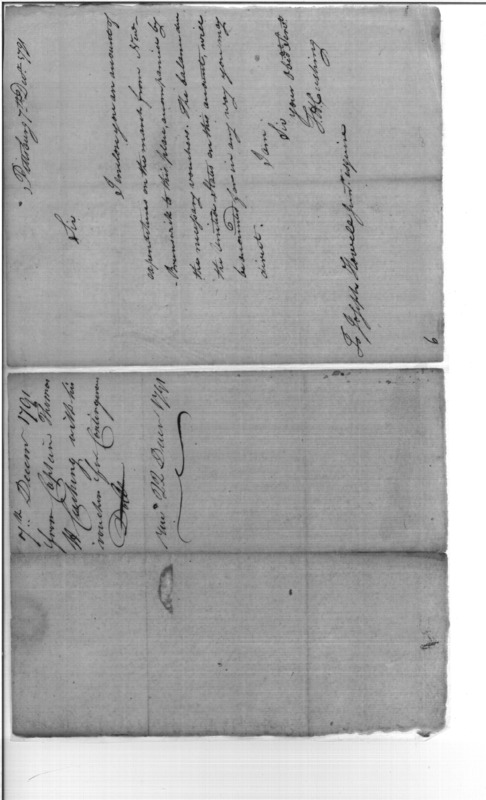 Pittsburg 7th Decr. 1791
Sir
I enclose you an account of
expenditures on the march from New-
Brunswick to this place, accompanied by
the necessary vouchers. The balance due
the united states on this account, will
be accounted for in any way you may
direct.
I am
Sir
your Obdt Servt
T H Cushing
To Joseph Howell junr esquire
6
7th Decemr 1791
from Captain Thomas
H Cushing with his
vouchers for Contingencies
Recd 22 Decr 1791